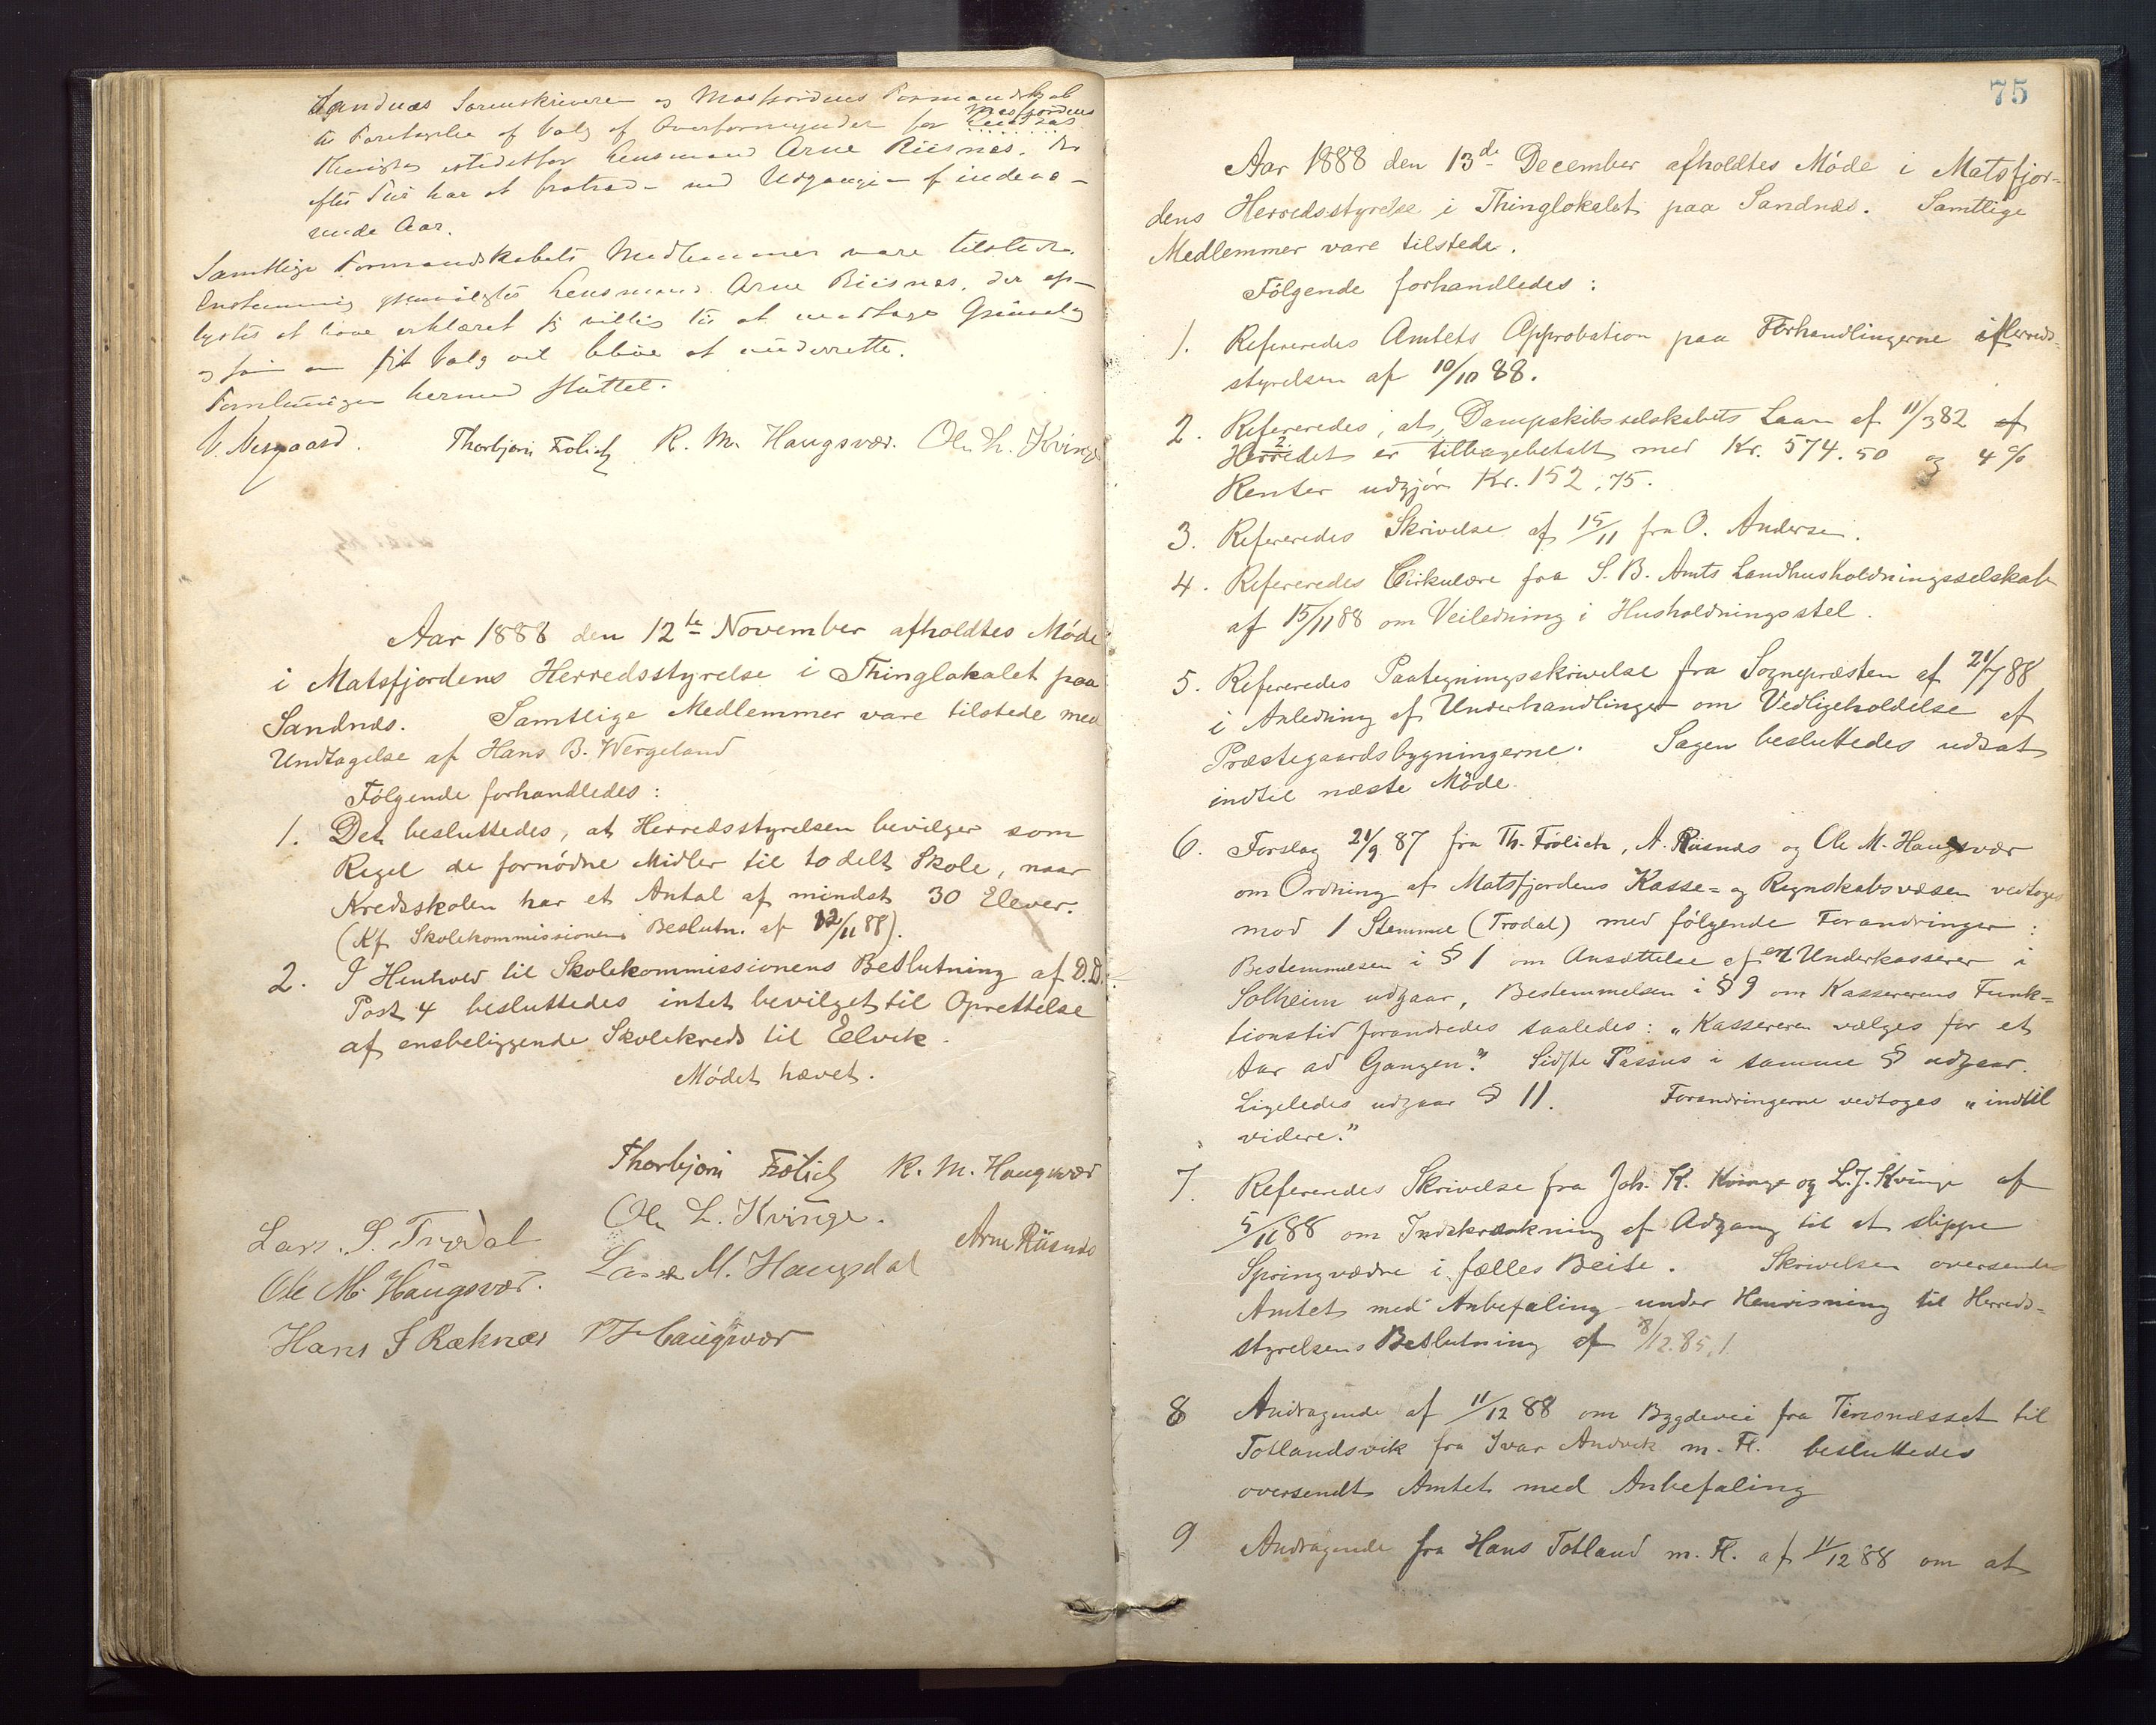 Sandnæs Sorenskriveren og Masfjordens Formandskab
til Foretagelse af Valg af Overformynder for Masfjordens
istedetfor Lensmand Arne Riisnes, der
efter Tur har at fratræde med Udgangen af indevæ-
rende Aar.
Samtlige Formandskabets Medlemmer vare tilstede.
Enstemmig gjenvalgtes Lensmand Arne Riisnes, der op-
lystes at have erklæret sig villig til at modtage Gjenvalg
og som om sit Valg vil blive at underrette.
Forretningen hermed sluttet.
V. Nesgaard. Thorbjørn Frölich R. M. Haugsvær. Ole L. Kvinge
Aar 1888 den 12te November afholdtes Möde
i Matsfjordens Herredsstyrelse i Thinglokalet paa
Sandnæs. Samtlige Medlemmer vare tilstede med
Undtagelse af Hans B. Wergeland
Fölgende forhandledes:
1. Det besluttedes, at Herredsstyrelsen bevilger som
Regel de fornödne Midler til todelt Skole, naar
Kredsskolen har et Antal af mindst 30 Elever.
(Kf. Skolekommissionens Beslutn. af 12/11 88).
2. I Henhold til Skolekommissionens Beslutning af D.D.
Post 4 besluttedes intet bevilget til Oprettelse
af ensbeliggende Skolekreds til Eelvik.
Mödet hævet.
Thorbjørn Frölich R. M. Haugsvær
Ole L. Kvinge.
Lars S. Trodal Arne Riisnæs
Lasse M. Haugsdal
Ole M. Haugsvær.
Hans J Ræknæs Haugsvær
75
Aar 1888 den 13de December afholdtes Möde i Matsfjor-
dens Herredsstyrelse i Thinglokalet paa Sandnæs. Samtlige
Medlemmer vare tilstede.
Fölgende forhandledes:
1. Refereredes Amtets Approbation paa Forhandlingerne i Herreds-
styrelsen af 10/10 88.
2. Refereredes, at Dampskibsselskabets Laan af 11/3 82 af
Herredet er tilbagebetalt med Kr. 574.50 og 4 %
Renter udgjör Kr. 152,75.
3. Refereredes Skrivelse af 15/11 fra O. Andersen.
4. Refereredes Cirkulære fra S. B. Amts Landhusholdningsselskab
af 15/11 88 om Veiledning i Husholdningsstel.
5. Refereredes Paategningsskrivelse fra Sognepræsten af 21/7 88
i Anledning af Underhandlinger om Vedligeholdelse af
Præstegaardsbygningerne. Sagen besluttedes udsat
indtil næste Möde.
6. Forslag 21/9 87 fra Th. Frölich, A. Riisnæs og Ole M. Haugsvær
om Ordning af Matsfjordens Kasse- og Regnskabsvæsen vedtoges
mod 1 Stemme (Trodal) med fölgende Forandringer:
Bestemmelsen i § 1 om Ansættelse af en Underkasserer i
Solheim udgaar, Bestemmelsen i § 9 om Kassererens Funk-
tionstid forandredes saaledes: "Kassereren vælges for et
Aar ad Gangen." Sidste Passus i samme § udgaar.
Ligeledes udgaar § 11. Forandringerne vedtoges "indtil
videre."
7. Refereredes Skrivelse fra Joh. K. Kvinge og L. J. Kvinge af
5/11 88 om Indskrænkning af Adgang til at slippe
Springvædre i fælles Beite. Skrivelsen oversendes
Amtet med Anbefaling under Henvisning til Herreds-
styrelsens Beslutning af 8/12.85,1
8 Andragende af 11/12 88 om Bygdevei fra Tirosnæsset til
Totlandsvik fra Ivar Andvik m. Fl. besluttedes
oversendt Amtet med Anbefaling
9 Andragende fra Hans Totland m. Fl. af 11/12 88 om at